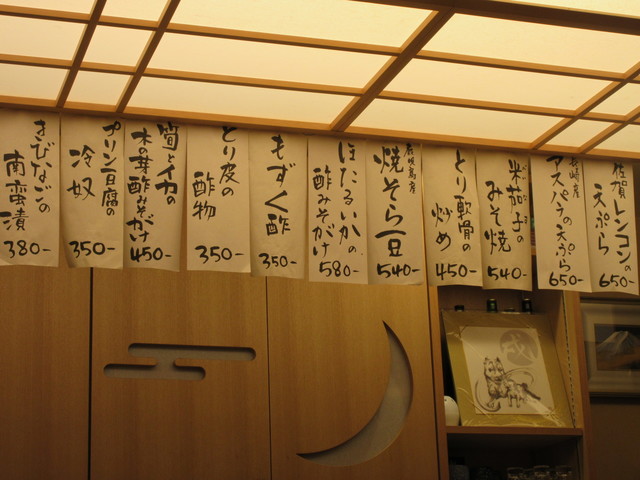 佐賀レンコンの
天ぷら
650-
長崎産
アスパラの天ぷら
650-
米茄子の
みそ焼
540-
とり軟骨の
炒め
450-
焼そら豆
540-
ほたるいかの
酢みそがけ
580-
もずく酢
350-
とり皮の
酢物
350-
筍とイカの
木の芽酢みそがけ
450-
プリン豆腐の
冷奴
350-
きびなごの
南蛮漬
380-
戌